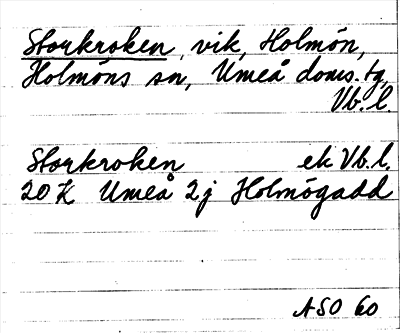 Storkroken, vik, Holmön,
Holmöns sn, Umeå doms. tg
Vb. l.
Storkroken ek Vb. l.
20 K Umeå 2j Holmögadd
ASO 60